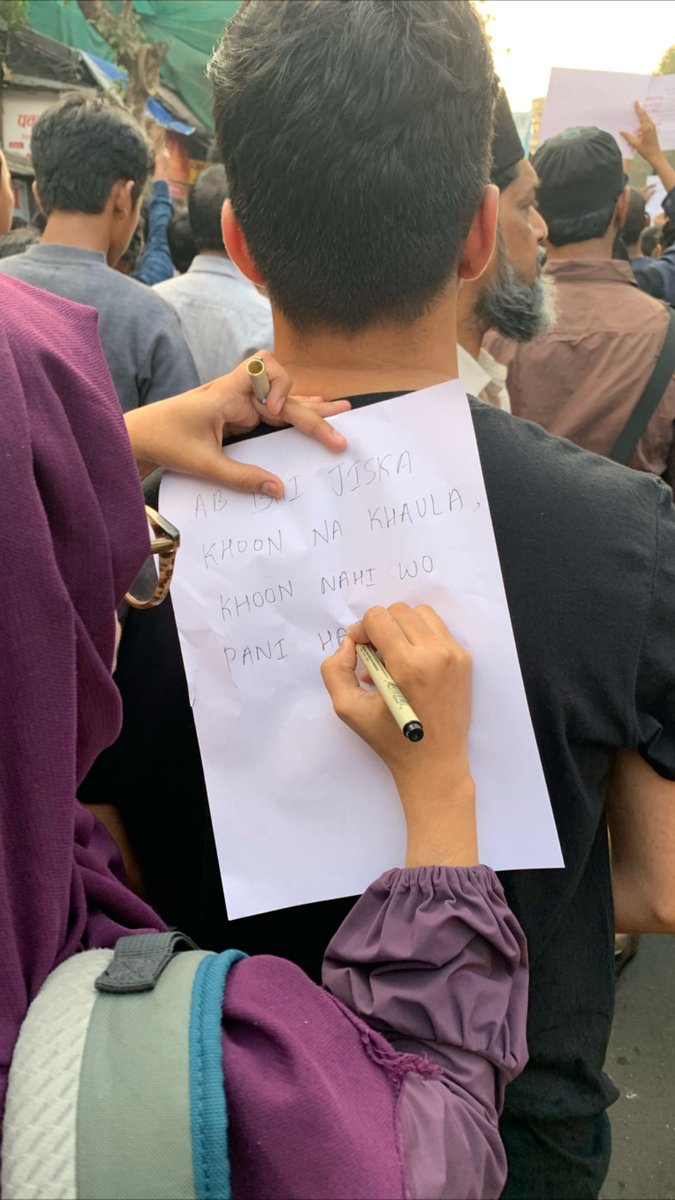 AB BHI JISKA
KHOON NA KHAULA,
KHOON NAHI WO
PANI HA